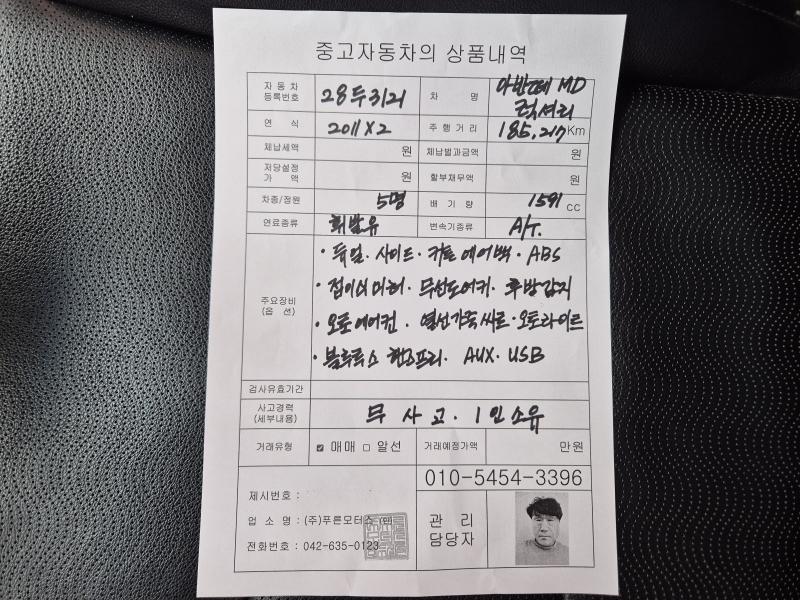 중고자동차의 상품내역
자 동 차
등록번호
28두3121
차 명
아반떼 MD
럭셔리
연 식
2011 X 2
주 행 거 리
185,217 Km
체납세액
원
체납벌과금액
원
저당설정
가 액
원
할부채무액
원
차종/정원
5명
배 기 량
1591 CC
연료종류
휘발유
변속기종류
A/T.
주요장비
(옵 션)
· 듀얼 · 사이드 · 커튼 에어백 · ABS
· 접이식 미러 · 무선도어키 · 후방감지
· 오토에어컨 · 열선가죽시트 · 오토라이트
· 블루투스 핸즈프리 · AUX · USB
검사유효기간
사고경력
(세부내용)
무 사 고 · 1 인 소유
거래유형
☑ 매매 □ 알선
거래예정가액
만원
010-5454-3396
제시번호 :
업 소 명 : (주)푸른모터스 (인)
전화번호 : 042-635-0123
관 리
담당자